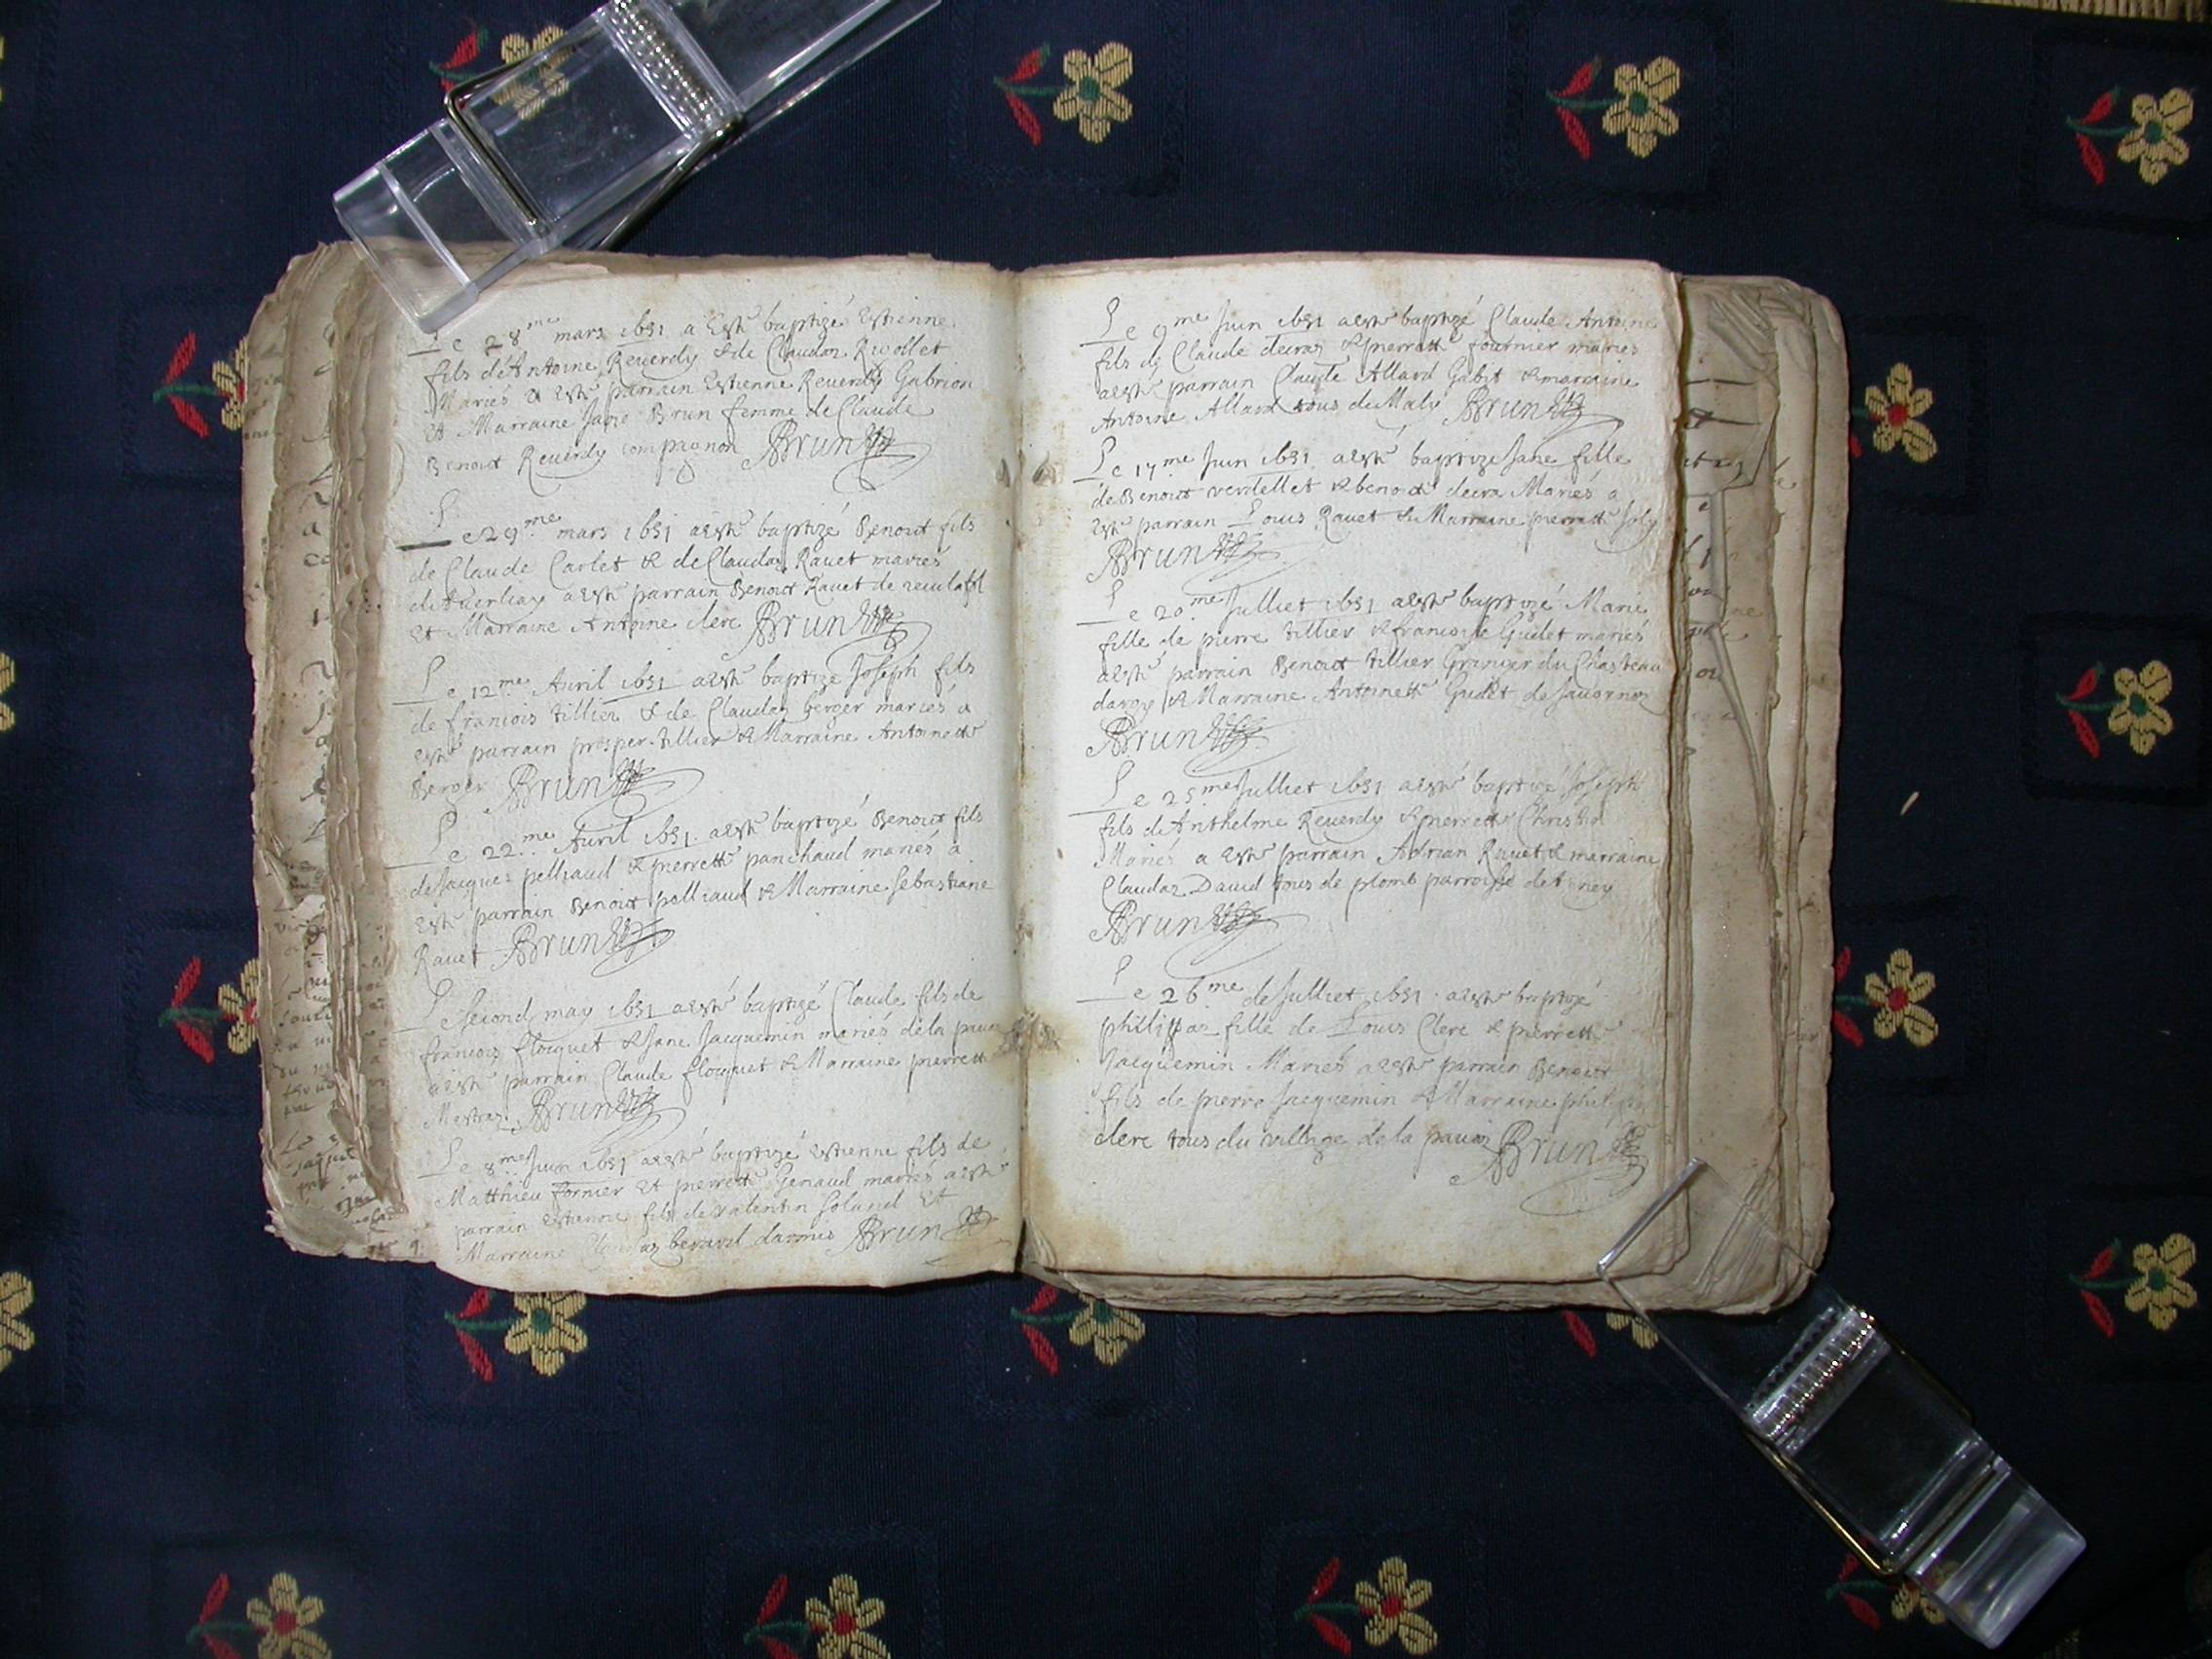 Le 28me mars 1651 a Esté baptizé Estienne
fils d'Antoine Reuerdy & de Claudaz Riuollet
Mariés a esté parrain Estienne Reuerdy Gabrion
et Marraine Jane Brun femme de Claude
Benoict Reuerdy compagnon Brun
Le 29me mars 1651 a esté baptizé Benoict fils
de Claude Carlet & de Claudaz Rauet mariés
a esté parrain Benoict Rauet de
et Marraine Antoine clerc Brun
Le 12me Auril 1651 a esté baptizé Joseph fils
de francois tillier & de Claudaz berger mariés a
esté parrain prosper tillier & Marraine Antoinette
Berger Brun
Le 22me Auril 1651 a esté baptizé Benoict fils
de Jacques pelliaud & pierrette panchaud mariés a
esté parrain Benoict pelliaud & Marraine Sebastiane
Rauet Brun
Le Second may 1651 a esté baptizé Claude fils de
francois flocquet & Jane Jacquemin mariés de la
a esté parrain Claude flocquet & Marraine pierrette
Mestraz Brun
Le 8me Juin 1651 a esté baptizé Estienne fils de
Matthieu fornier et pierrette Genaud mariés a esté
parrain Estienne fils de valentin et
Marraine berard Brun
Le 9me Juin 1651 a esté baptizé Claude Antoine
fils de Claude decraz & pierrette fournier mariés
a esté parrain Claude Allard Gabit & marraine
Antoine Allard tous de Brun
Le 17me Juin 1651 a esté baptizé Jane fille
de Benoict verdellet & benoite decra Mariés a
esté parrain Louis Rauet & Marraine pierrette Joly
Brun
Le 20me Julliet 1651 a esté baptizé Marie
fille de pierre tillier & francoise Gudet mariés
a esté parrain Benoict tillier Granger du Chasteau
dargy & Marraine Antoinette Gudet de
Brun
Le 25me Julliet 1651 a esté baptizé Joseph
fils d'Anthelme Reuerdy & pierrette Christin
Mariés a esté parrain Adrian Rauet & marraine
Claudaz Dauid tous de plomb parroisse de
Brun
Le 26me de Julliet 1651 a esté baptizé
philippaz fille de Louis Clerc & pierrette
Jacquemin Mariés a esté parrain Benoict
fils de pierre Jacquemin & Marraine
clerc tous du village de la pauaz Brun